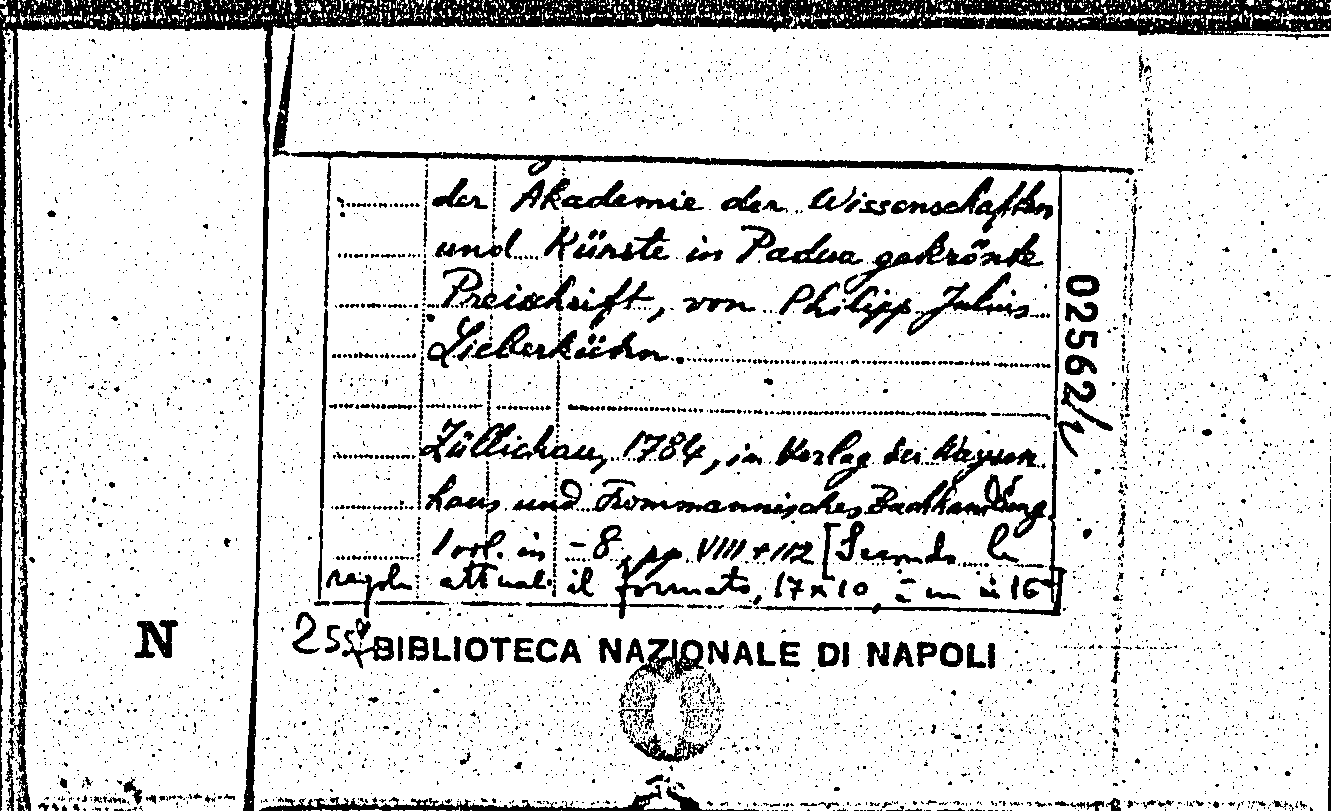 der Akademie der Wissenschaften
und Künste in Padua gekrönte
Preisschrift, von Philipp Julius
Lieberkühn.
02562/
Züllichau, 1784, im Verlag der Waysen
haus und Frommannisches Buchhandlung.
1 vol. in -8, pp. VIII+112 [Secondo le
regole attuali il formato, 17x10, è un in 16]
N
BIBLIOTECA NAZIONALE DI NAPOLI